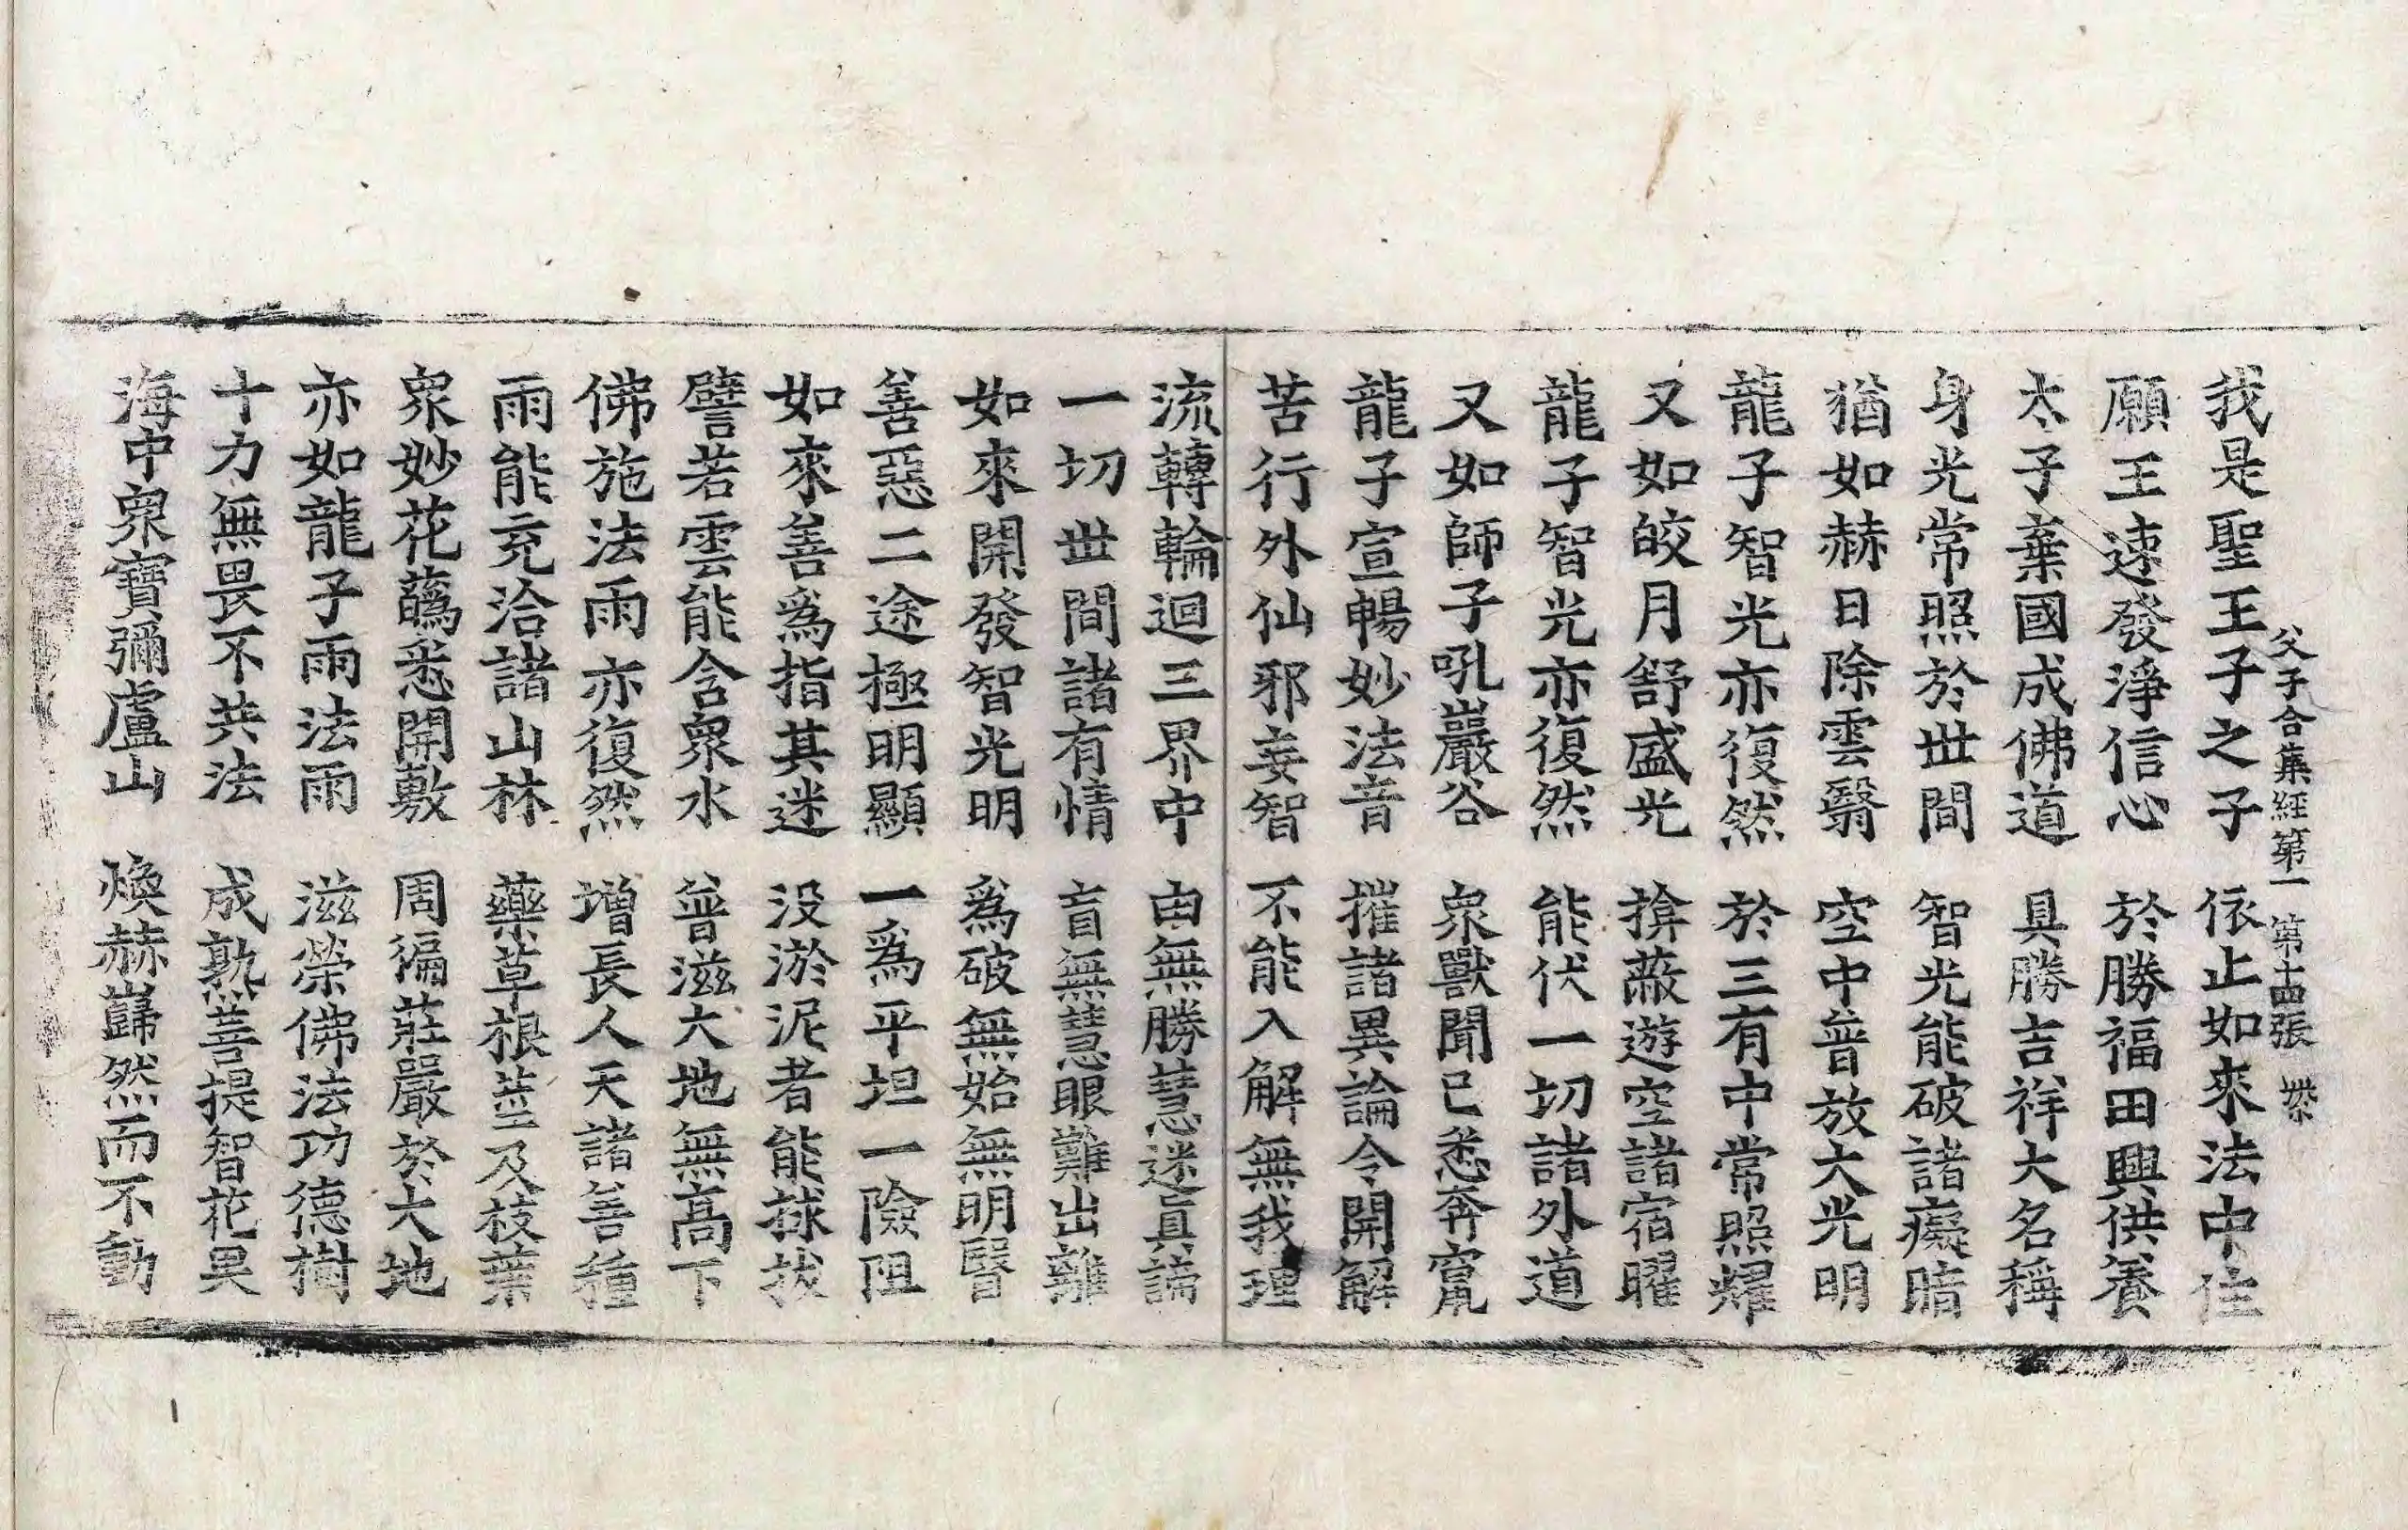 父子合集經第一 第十四張 㭗
我是聖王子之子 依止如來法中住
願王速發淨信心 於勝福田興供養
太子棄國成佛道 具勝吉祥大名稱
身光常照於世間 智光能破諸癡暗
猶如赫日除雲翳 空中普放大光明
龍子智光亦復然 於三有中常照耀
又如皎月舒盛光 揜蔽遊空諸宿曜
龍子智光亦復然 能伏一切諸外道
又如師子吼巖谷 衆獸聞已悉奔竄
龍子宣暢妙法音 摧諸異論令開解
苦行外仙邪妄智 不能入解無我理
流轉輪迴三界中 由無勝慧迷眞諦
一切世間諸有情 盲無慧眼難出離
如來開發智光明 爲破無始無明瞖
善惡二途極明顯 一爲平坦一險阻
如來善爲指其迷 没淤泥者能捄拔
譬若雲能含衆水 普滋大地無高下
佛施法雨亦復然 增長人天諸善種
雨能充洽諸山林 藥草根莖及枝葉
衆妙花蘤悉開敷 周徧莊嚴於大地
亦如龍子雨法雨 滋榮佛法功德樹
十力無畏不共法 成熟菩提智花果
海中衆寶彌盧山 煥赫巋然而不動